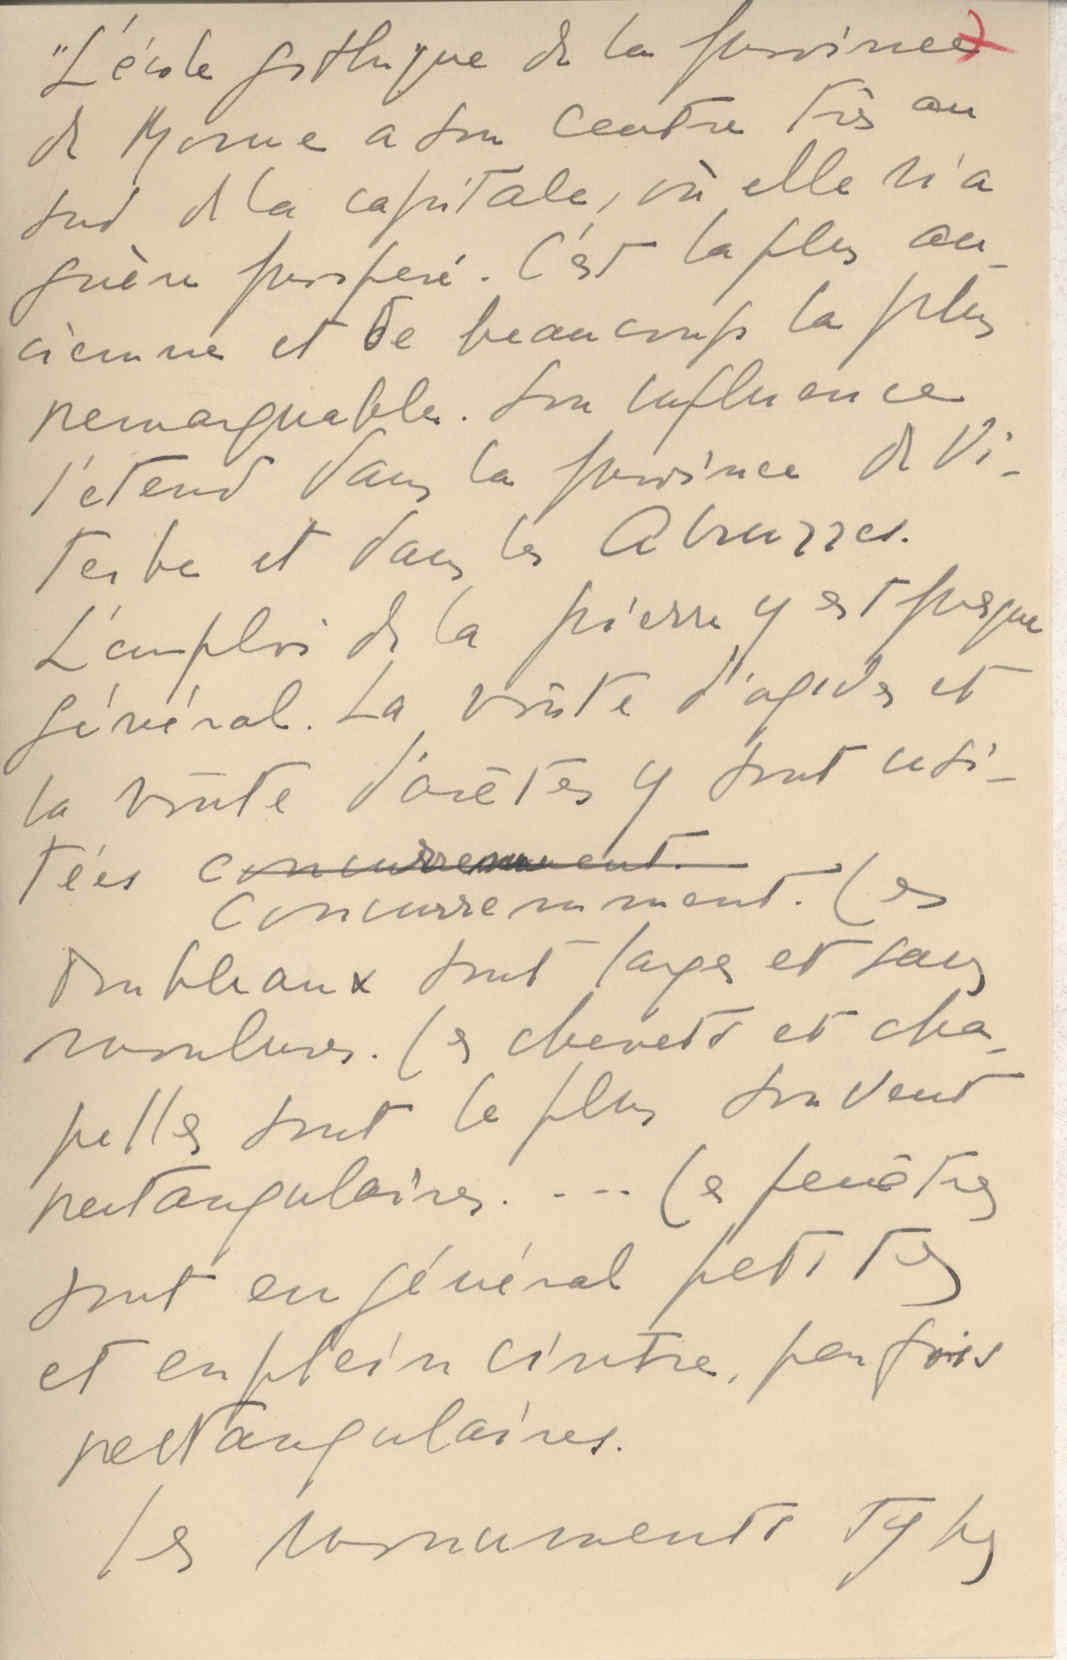 "L'école gothique de la province
de Rome a son centre très au
sud de la capitale, où elle n'a
guère prospéré. C'est la plus an-
cienne et de beaucoup la plus
remarquable. Son influence
s'étend dans la province de Vi-
terbe et dans les Abruzzes.
L'emploi de la pierre y est presque
général. La voûte d'ogives et
la voûte d'arêtes y sont usi-
tées concurremment.
concurremment. Les
doubleaux sont larges et sans
moulures. Les chevets et cha-
pelles sont le plus souvent
rectangulaires. --- Les fenêtres
sont en général petites
et en plein cintre, parfois
rectangulaires.
Les monuments types